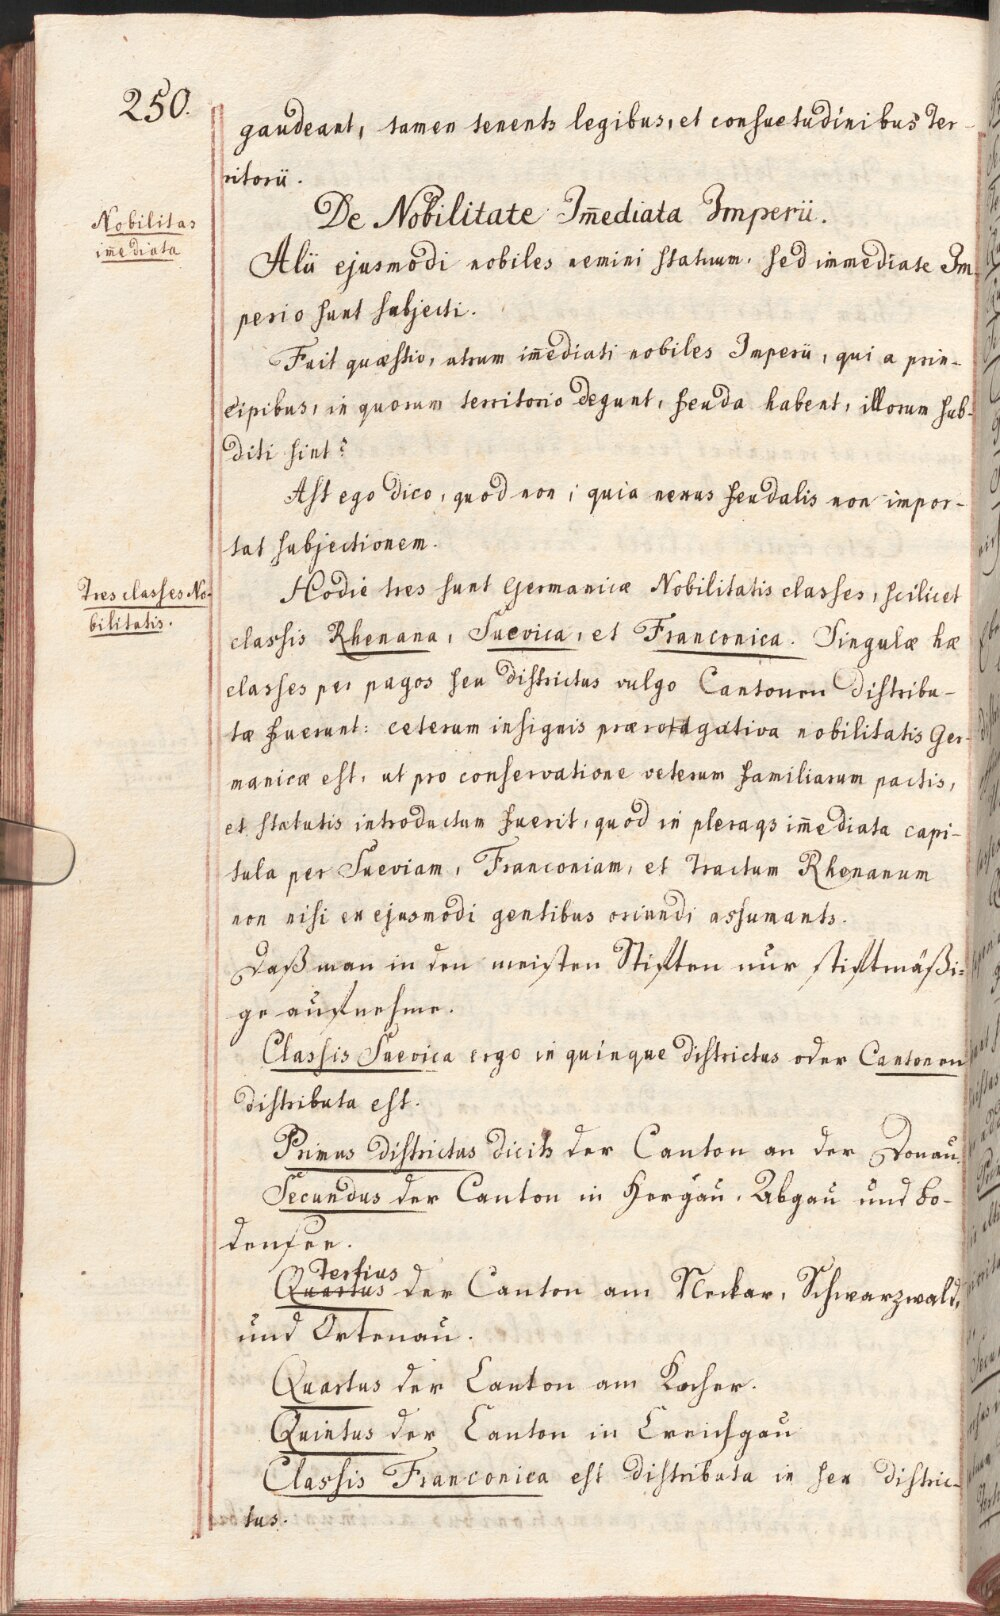 250.
gaudeant, tamen tenentr legibus, et consuetudinibus Ter-
ritorii.
De Nobilitate Im̄ediata Imperii.
Nobilitas
im̄ediata
Alii ejusmodi nobiles nemini statuum, sed immediate Im-
perio sunt subjecti.
Fuit quæstio, utrum im̄ediati nobiles Imperii, qui a prin-
cipibus, in quorum territorio degunt, feuda habent, illorum sub-
diti sint?
Ast ego dico, quod non; quia nexus feudalis non impor-
tat subjectionem.
Tres classes No-
bilitatis.
Hodie tres sunt Germanicæ Nobilitatis classes, scilicet
classis Rhenana, Suevica, et Franconica. Singulæ hæ
classes per pagos seu districtus vulgo Cantonen distribu-
tæ fuerunt: ceterum insignis prærotagativa nobilitatis Ger-
manicæ est, ut pro conservatione veterum familiarum pactis,
et statutis introductum fuerit, quod in pleraqs im̄ediata capi-
tula per Sueviam, Franconiam, et Tractum Rhenanum
non nisi ex ejusmodi gentibus oriundi assumantr.
Daß man in den meisten Stiften nur stiftmäßi-
ge aufnehme.
Classis Suevica ergo in quinque districtus oder Cantonen
distributa est.
Primus districtus dicitr der Canton an der Donau.
Secundus der Canton in Hergau, Abgau und Bo-
densee.
Tertius
Quartus der Canton am Neckar, Schwarzwald,
und Ortenau.
Quartus der Canton am Kocher.
Quintus der Canton in Creichgau
Classis Franconica est distributa in sex distric-
tus.